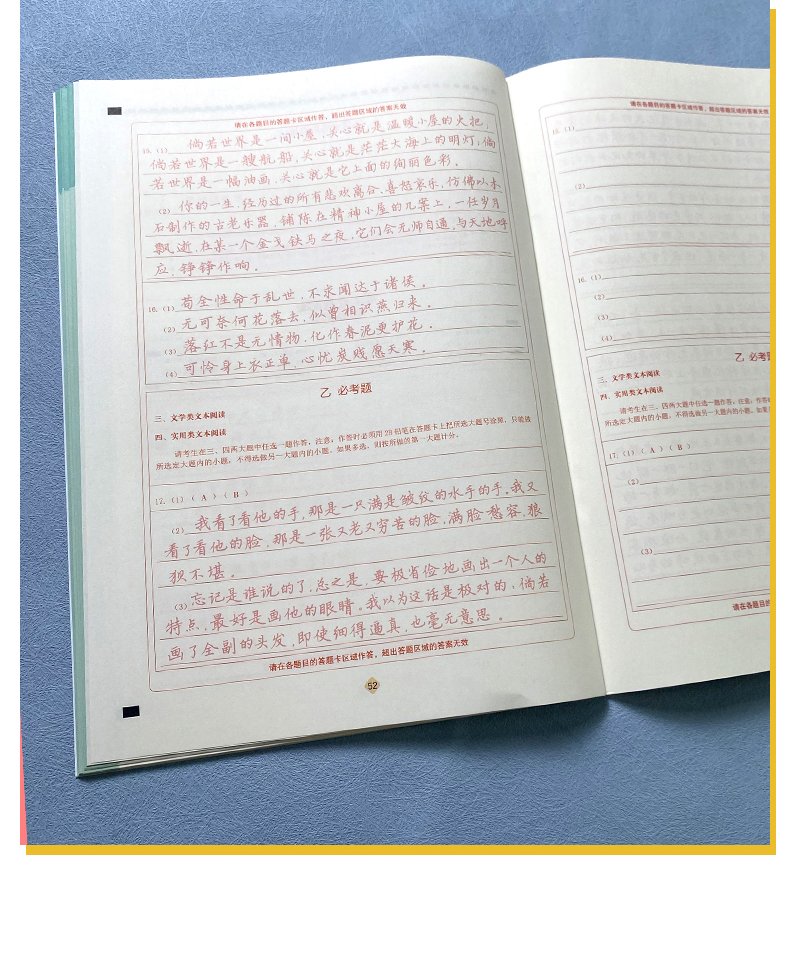 请在各题目的答题卡区域作答，超出答题区域的答案无效
15.（1） 倘若世界是一间小屋，关心就是温暖小屋的火把，
倘若世界是一艘航船，关心就是茫茫大海上的明灯；倘
若世界是一幅油画，关心就是它上面的绚丽色彩。
（2）你的一生，经历过的所有悲欢离合、喜怒哀乐，仿佛以木
石制作的古老乐器，铺陈在精神小屋的几案上，一任岁月
飘逝，在某一个金戈铁马之夜，它们会无师自通，与天地呼
应，铮铮作响。
16.（1）苟全性命于乱世，不求闻达于诸侯。
（2）无可奈何花落去，似曾相识燕归来。
（3）落红不是无情物，化作春泥更护花。
（4）可怜身上衣正单，心忧炭贱愿天寒。
乙 必考题
三、文学类文本阅读
四、实用类文本阅读
请考生在三、四两大题中任选一题作答，注意：作答时必须用2B铅笔在答题卡上把所选大题号涂黑，只能做
所选定大题内的小题，不得选做另一大题内的小题，如果多选，则按所做的第一大题计分。
17.（1）（ A ）（ B ）
（2） 我看了看他的手，那是一只满是皱纹的水手的手。我又
看了看他的脸，那是一张又老又穷苦的脸，满脸愁容，狼
狈不堪。
（3）忘记是谁说的了，总之是，要极省俭地画出一个人的
特点，最好是画他的眼睛。我以为这话是极对的，倘若
画了全副的头发，即使细得逼真，也毫无意思。
请在各题目的答题卡区域作答，超出答题区域的答案无效
52
请在各题目的答题卡区域作答，超出答题区域的答案无效
15.（1）
（2）
16.（1）
（2）
（3）
（4）
乙 必考题
三、文学类文本阅读
四、实用类文本阅读
请考生在三、四两大题中任选一题作答，注意：作答
所选定大题内的小题，不得选做另一大题内的小题，如果
17.（1）（ A ）（ B ）
（2）
（3）
请在各题目的